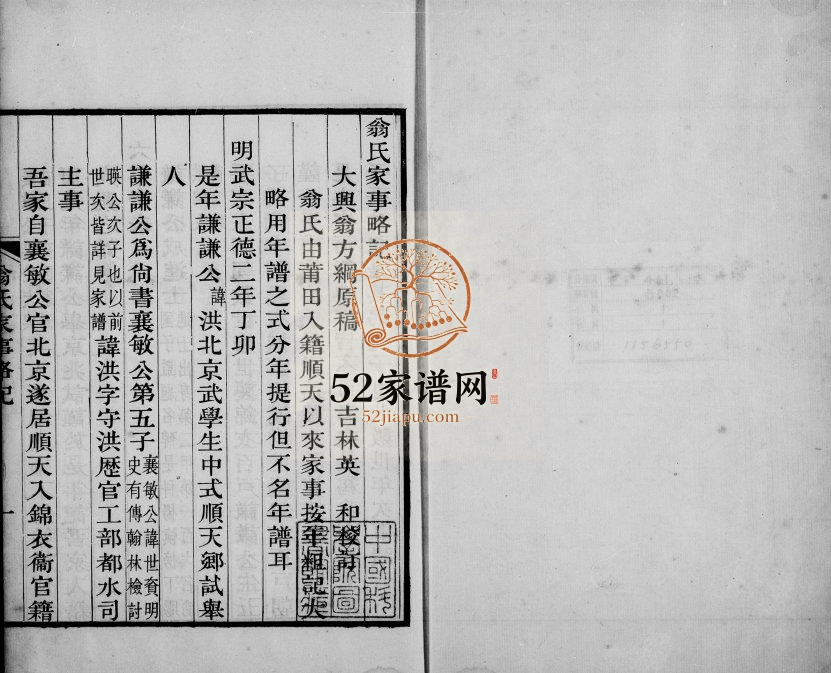 翁氏家事略記
大興翁方綱原稿 吉林英 和校訂
翁氏由莆田入籍順天以來家事按年粗記大
略用年譜之式分年提行但不名年譜耳
明武宗正德二年丁卯
是年謙謙公諱洪北京武學生中式順天鄉試舉
人
謙謙公爲尙書襄敏公第五子襄敏公諱世資明史有傳翰林檢討
瑛公次子也以前世次皆詳見家譜諱洪字守洪歷官工部都水司
主事
吾家自襄敏公官北京遂居順天入錦衣衞官籍
翁氏家事略記
一
52家谱网
52jiapu.com